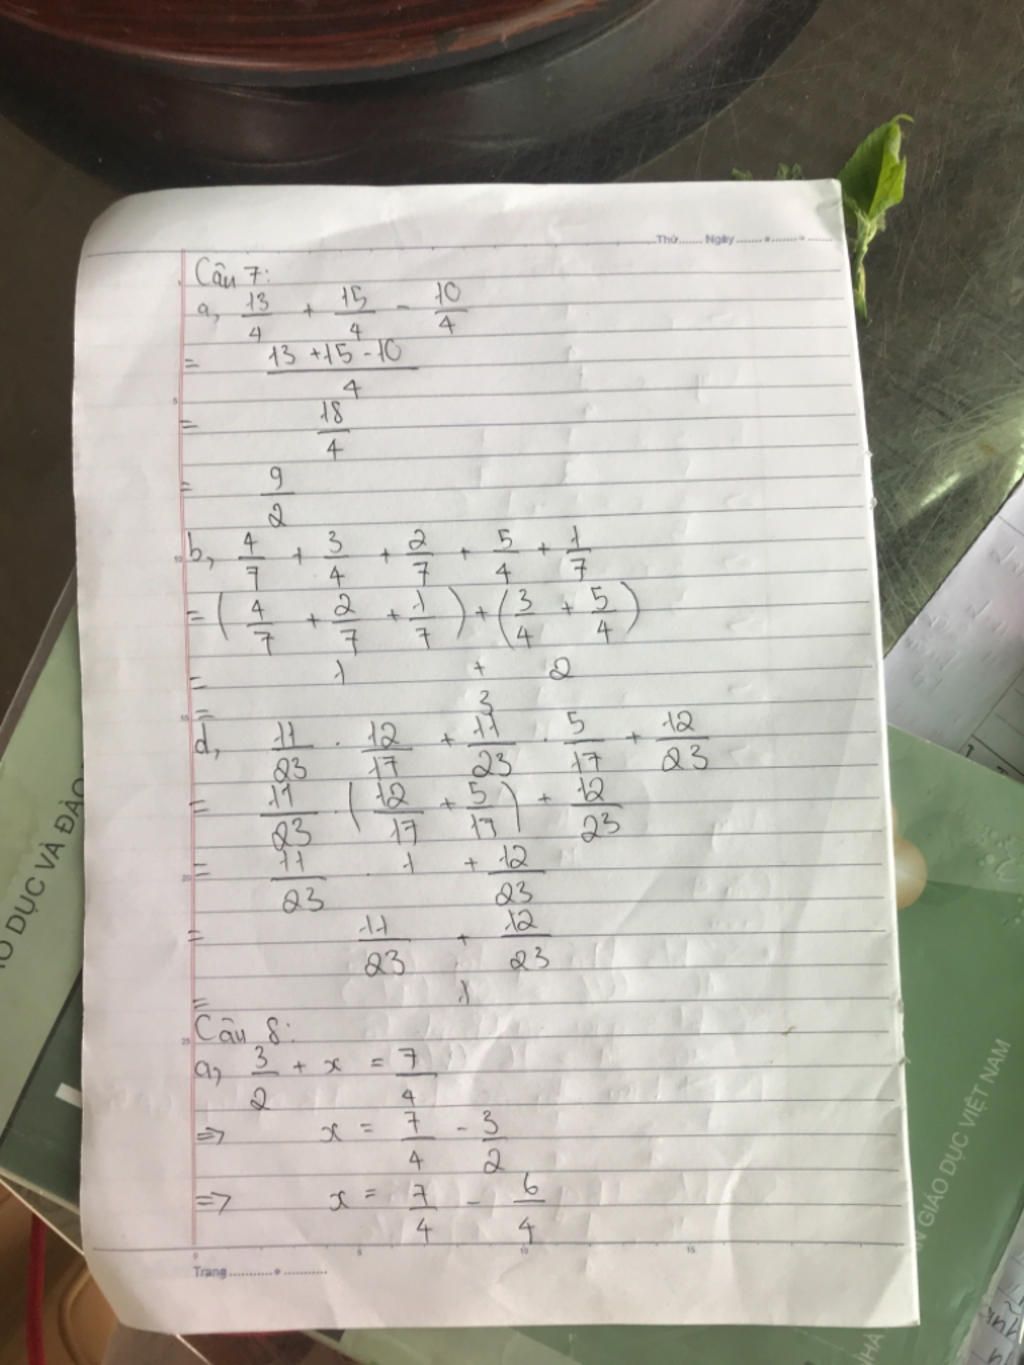 Thứ...... Ngày.......•.......•.......
Câu 7:
a, 13/4 + 15/4 - 10/4
= (13 + 15 - 10)/4
= 18/4
= 9/2
b, 4/7 + 3/4 + 2/7 + 5/4 + 1/7
= (4/7 + 2/7 + 1/7) + (3/4 + 5/4)
= 1 + 2
= 3
d, 11/23 . 12/17 + 11/23 . 5/17 + 12/23
= 11/23 . (12/17 + 5/17) + 12/23
= 11/23 . 1 + 12/23
= 11/23 + 12/23
= 1
Câu 8:
a, 3/2 + x = 7/4
=> x = 7/4 - 3/2
=> x = 7/4 - 6/4
5
10
15
20
25
0 5 10 15
Trang...........•...........
DỤC VÀ ĐÀO
GIÁO DỤC VIỆT NAM